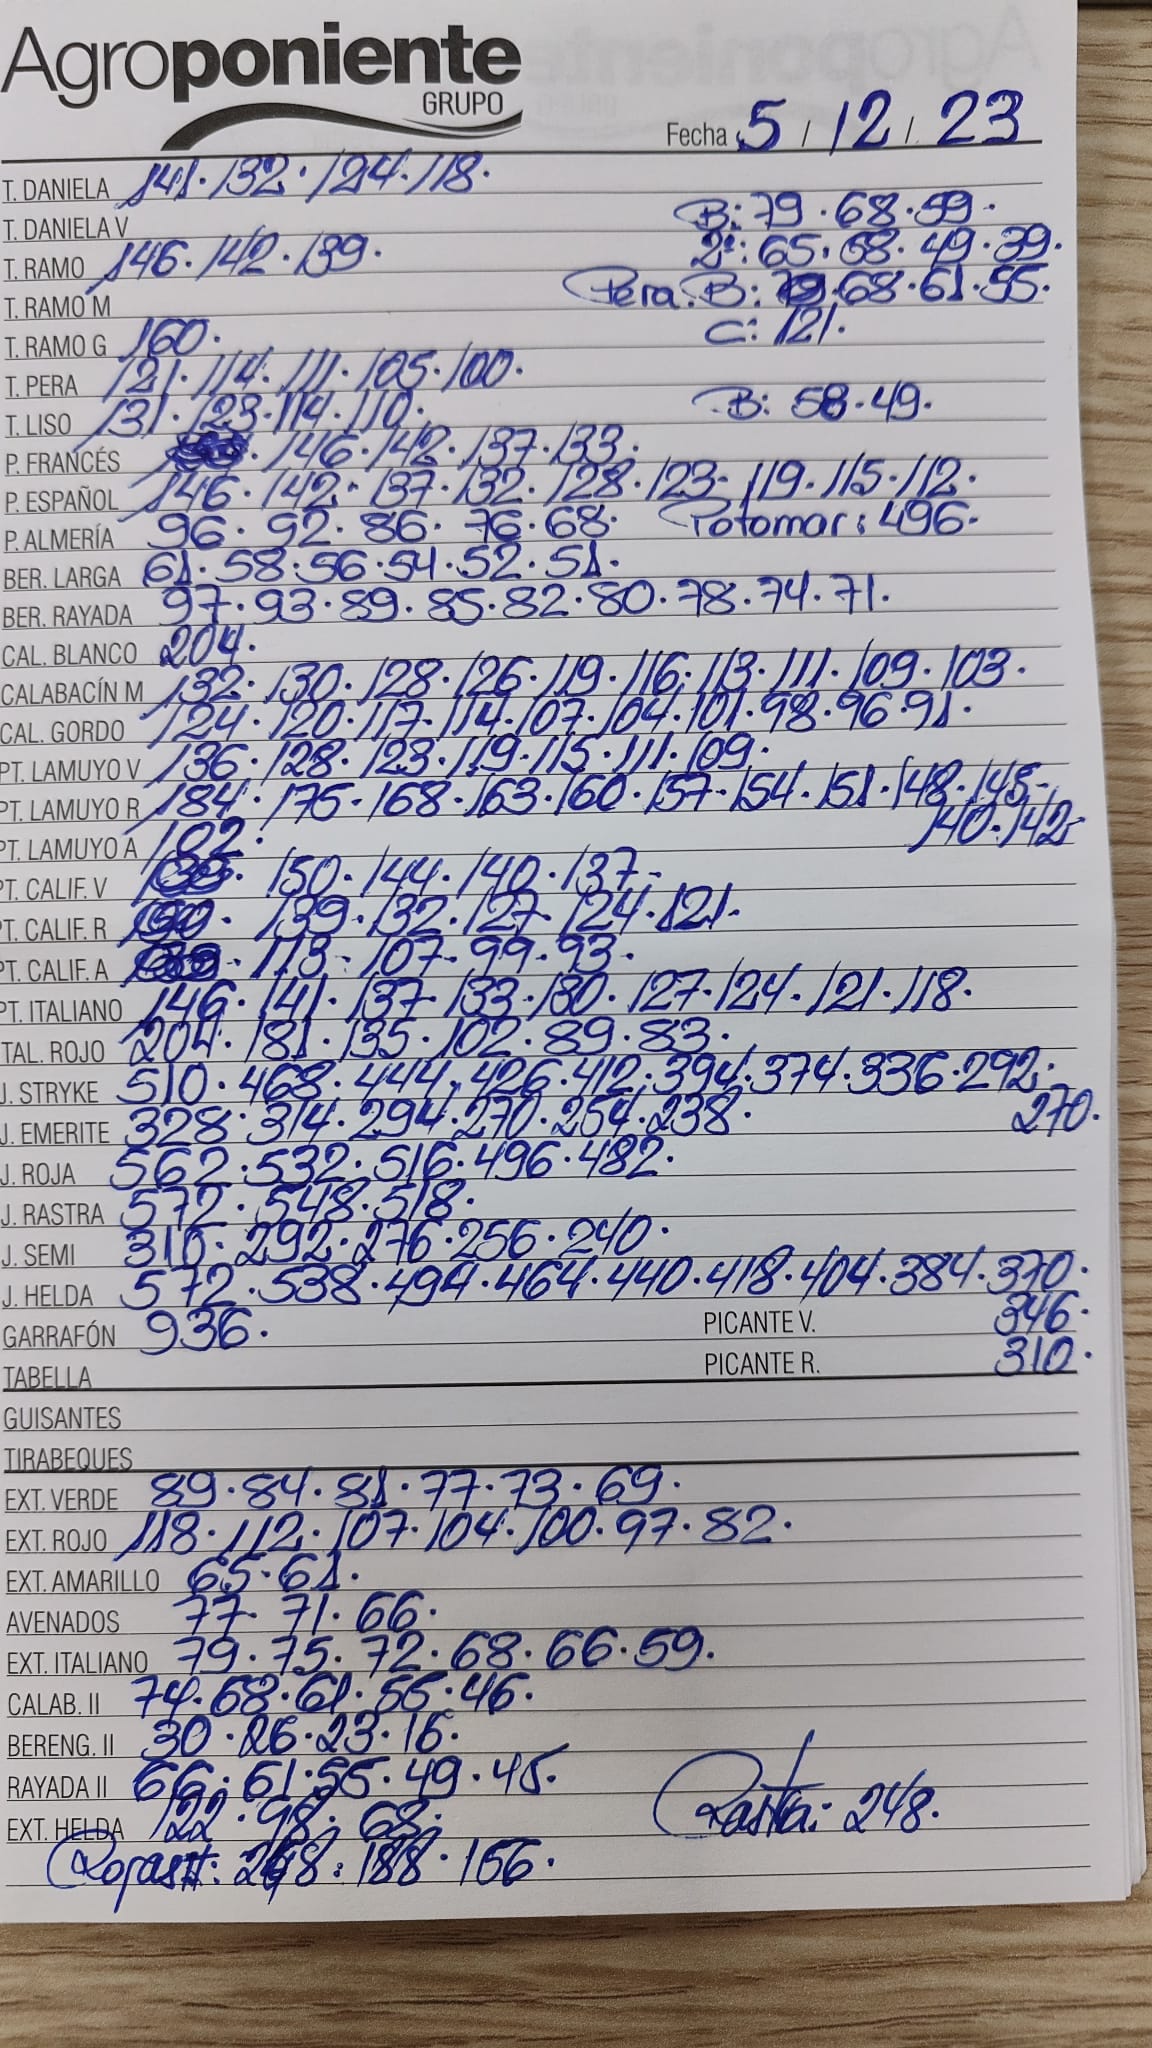 Agroponiente
GRUPO
Fecha 5 / 12 / 23
T. DANIELA 141 · 132 · 124 · 118 ·
T. DANIELA V B: 79 · 68 · 59 ·
T. RAMO 146 · 142 · 139 · 2ª: 65 · 58 · 49 · 39 ·
T. RAMO M Pera: B: 79 · 68 · 61 · 55 ·
T. RAMO G 160 · C: 121 ·
T. PERA 121 · 114 · 111 · 105 · 100 ·
T. LISO 131 · 123 · 114 · 110 · B: 58 · 49 ·
P. FRANCÉS · 146 · 142 · 137 · 133 ·
P. ESPAÑOL 146 · 142 · 137 · 132 · 128 · 123 · 119 · 115 · 112 ·
P. ALMERÍA 96 · 92 · 86 · 76 · 68 · Potomar: 496 ·
BER. LARGA 61 · 58 · 56 · 54 · 52 · 51 ·
BER. RAYADA 97 · 93 · 89 · 85 · 82 · 80 · 78 · 74 · 71 ·
CAL. BLANCO 204 ·
CALABACÍN M 132 · 130 · 128 · 126 · 119 · 116 · 113 · 111 · 109 · 103 ·
CAL. GORDO 124 · 120 · 117 · 114 · 107 · 104 · 101 · 98 · 96 · 91 ·
PT. LAMUYO V 136 · 128 · 123 · 119 · 115 · 111 · 109 ·
PT. LAMUYO R 184 · 175 · 168 · 163 · 160 · 157 · 154 · 151 · 148 · 145 ·
140 · 142 ·
PT. LAMUYO A 102 ·
PT. CALIF. V · 150 · 144 · 140 · 137 ·
PT. CALIF. R · 139 · 132 · 127 · 124 · 121 ·
PT. CALIF. A · 113 · 107 · 99 · 93 ·
PT. ITALIANO 146 · 141 · 137 · 133 · 130 · 127 · 124 · 121 · 118 ·
TAL. ROJO 204 · 181 · 135 · 102 · 89 · 83 ·
J. STRYKE 510 · 468 · 444 · 426 · 412 · 394 · 374 · 336 · 292 ·
270 ·
J. EMERITE 328 · 314 · 294 · 270 · 254 · 238 ·
J. ROJA 562 · 532 · 516 · 496 · 482 ·
J. RASTRA 572 · 548 · 518 ·
J. SEMI 310 · 292 · 276 · 256 · 240 ·
J. HELDA 572 · 538 · 494 · 464 · 440 · 418 · 404 · 384 · 370 ·
GARRAFÓN 936 · PICANTE V. 346 ·
TABELLA PICANTE R. 310 ·
GUISANTES
TIRABEQUES
EXT. VERDE 89 · 84 · 81 · 77 · 73 · 69 ·
EXT. ROJO 118 · 112 · 107 · 104 · 100 · 97 · 82 ·
EXT. AMARILLO 65 · 61 ·
AVENADOS 77 · 71 · 66 ·
EXT. ITALIANO 79 · 75 · 72 · 68 · 66 · 59 ·
CALAB. II 74 · 68 · 61 · 55 · 46 ·
BERENG. II 30 · 26 · 23 · 16 ·
RAYADA II 66 · 61 · 55 · 49 · 45 ·
EXT. HELDA 122 · 98 · 68 · Rastra: 248 ·
: 188 · 156 ·